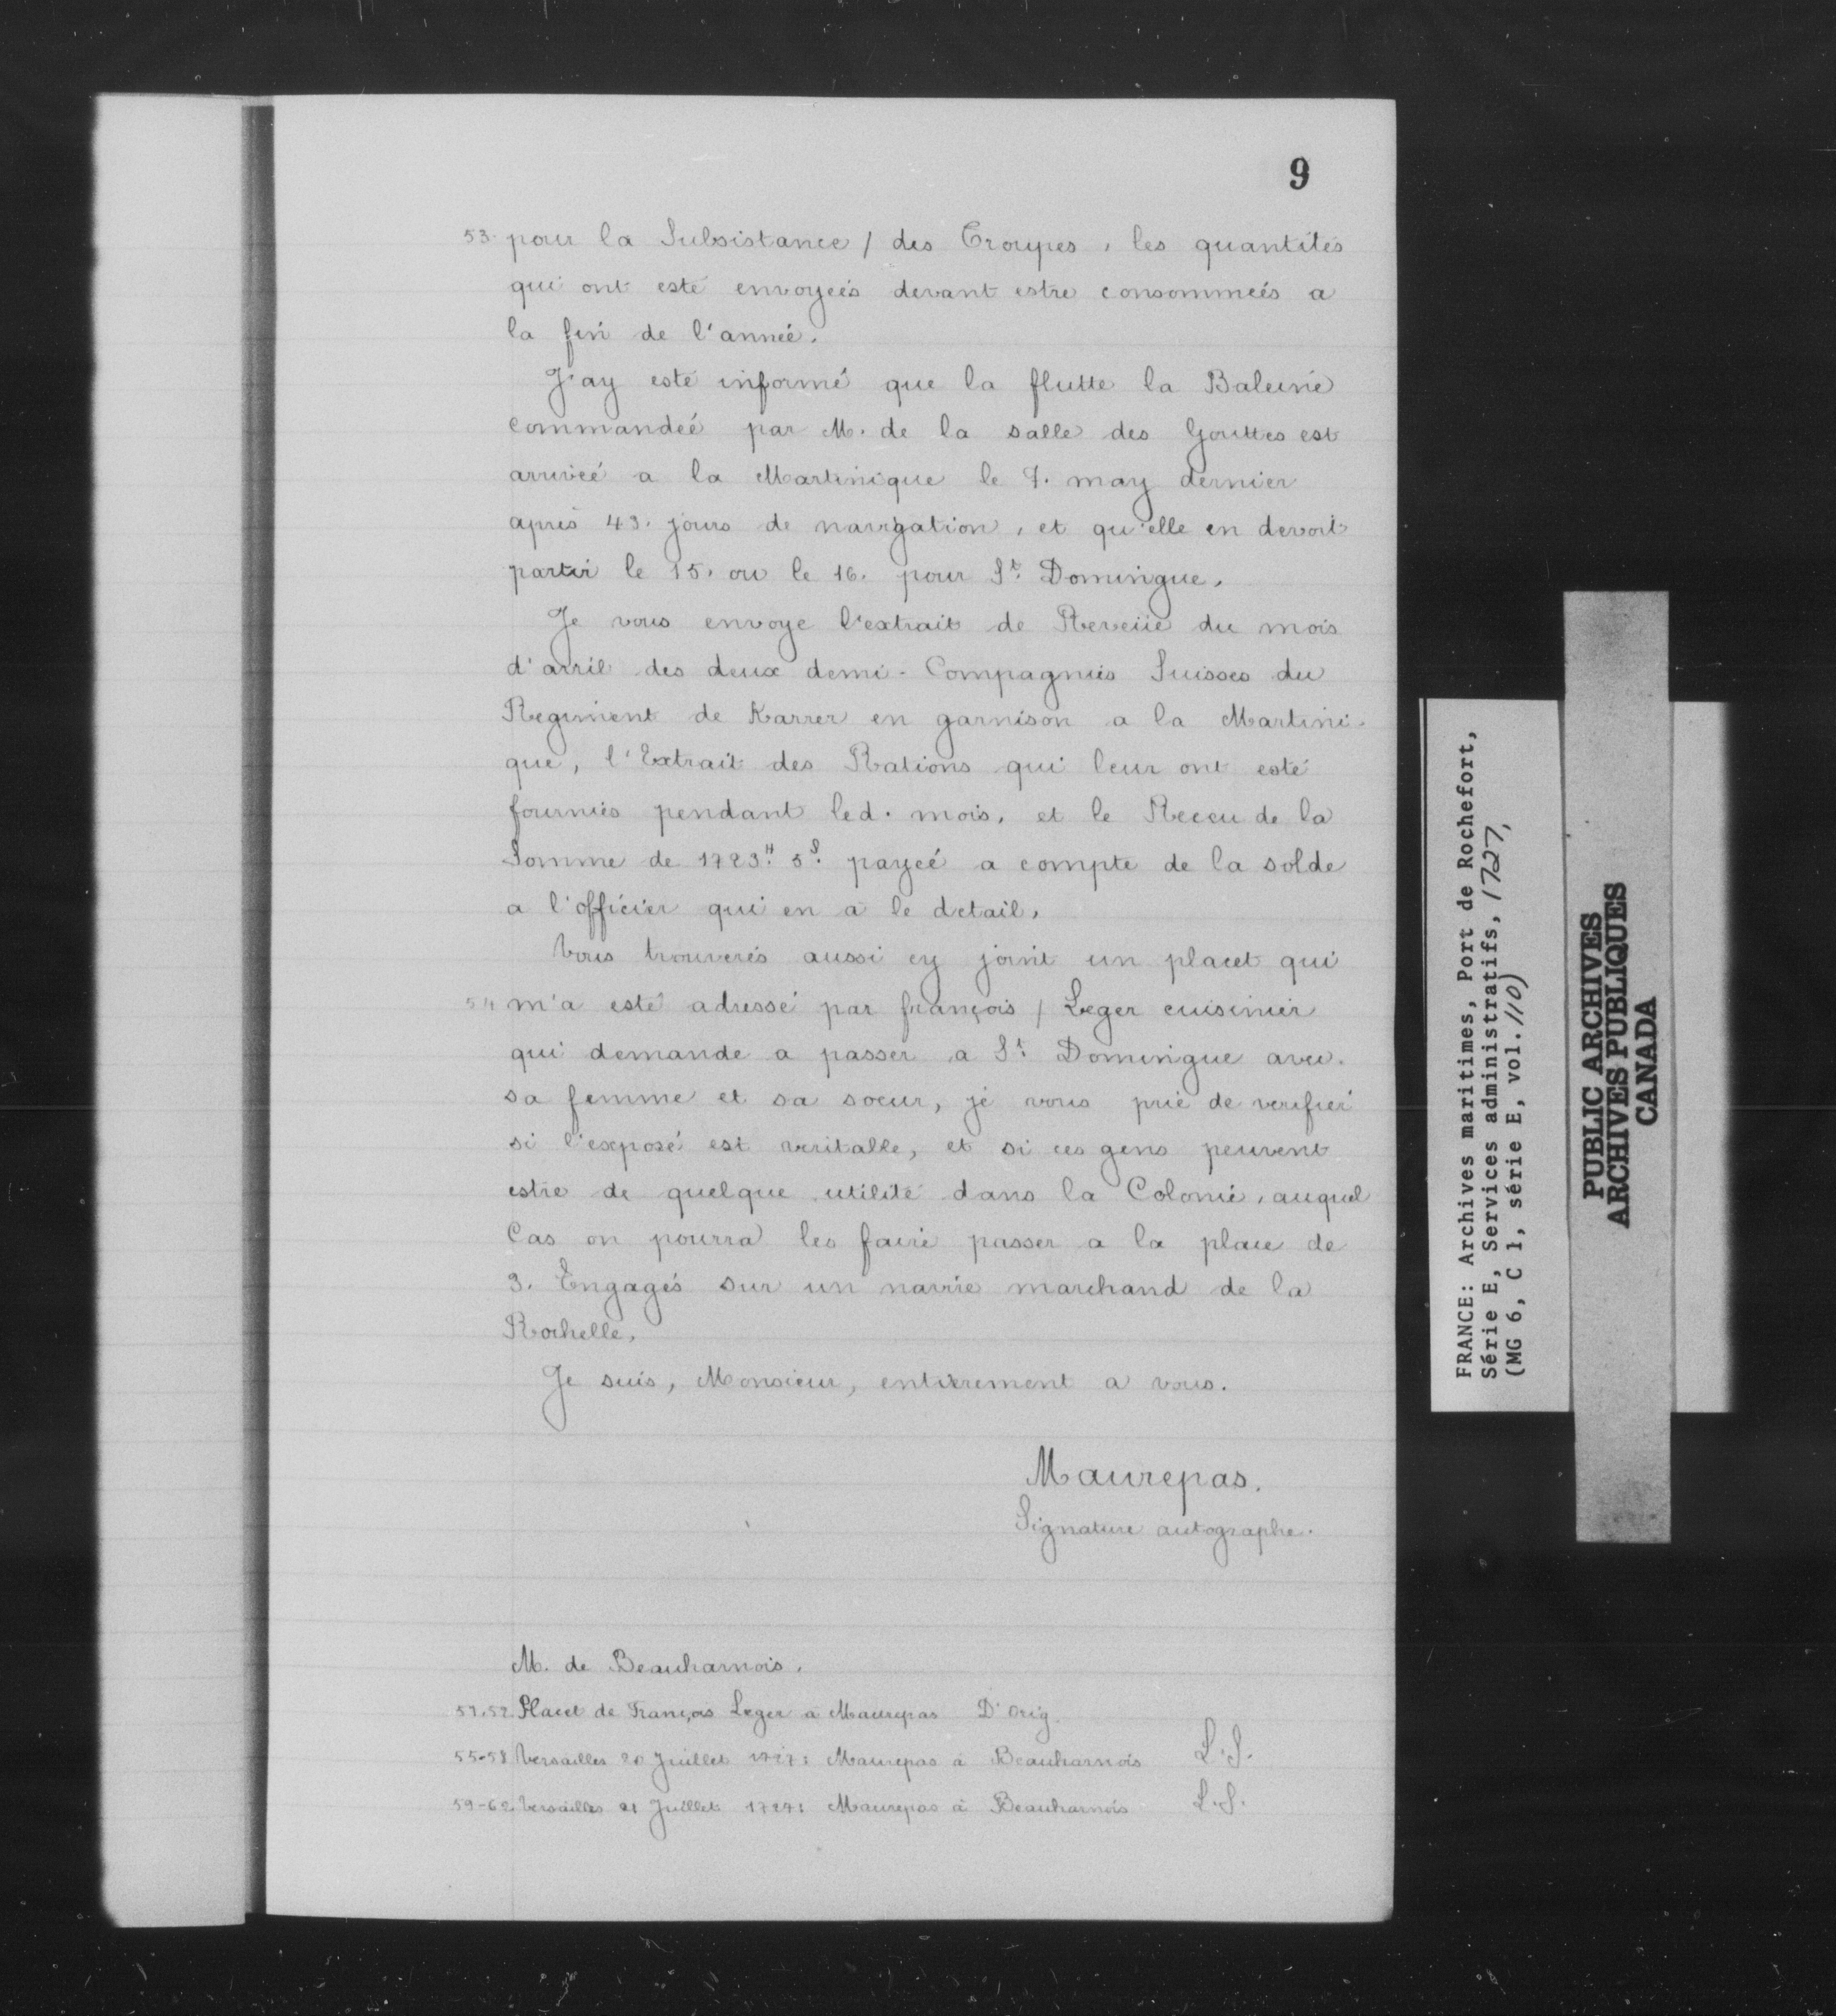 9
53. pour la Subsistance / des Troupes, les quantités
qui ont esté envoyeés devant estre consommeés a
la fin de l'anneé.
J'ay esté informé que la flutte la Baleine
commandeé par M. de la salle des Gouttes est
arriveé a la Martinique le 7. may dernier
aprés 43. jours de navigation, et qu'elle en devoit
partir le 15. ou le 16. pour St. Domingue.
Je vous envoye l'extrait de Reveüe du mois
d'avril des deux demi-Compagnies Suisses du
Regiment de Karrer en garnison a la Martini-
que, l'Extrait des Rations qui leur ont esté
fournies pendant led. mois, et le Receu de la
Somme de 1723tt. 5s. payeé a compte de la solde
a l'officier qui en a le detail.
Vous trouverés aussi cy joint un placet qui
54 m'a esté adressé par françois / Leger cuisinier
qui demande a passer a St. Domingue avec
sa femme et sa soeur, je vous prie de verifier
si l'exposé est veritable, et si ces gens peuvent
estre de quelque utilité dans la Colonie, auquel
Cas on pourra les faire passer a la place de
3. Engagés sur un navire marchand de la
Rochelle.
Je suis, Monsieur, entierement a vous.
Maurepas.
Signature autographe.
M. de Beauharnois.
51.52 Placet de François Leger a Maurepas D' Orig.
55-58 Versailles 20 Juillet 1727: Maurepas à Beauharnois L.S.
59-62 Versailles 21 Juillet 1727: Maurepas à Beauharnois L.S.
FRANCE: Archives maritimes, Port de Rochefort,
Série E, Services administratifs, 1727,
(MG 6, C 1, série E, vol. 110)
PUBLIC ARCHIVES
ARCHIVES PUBLIQUES
CANADA